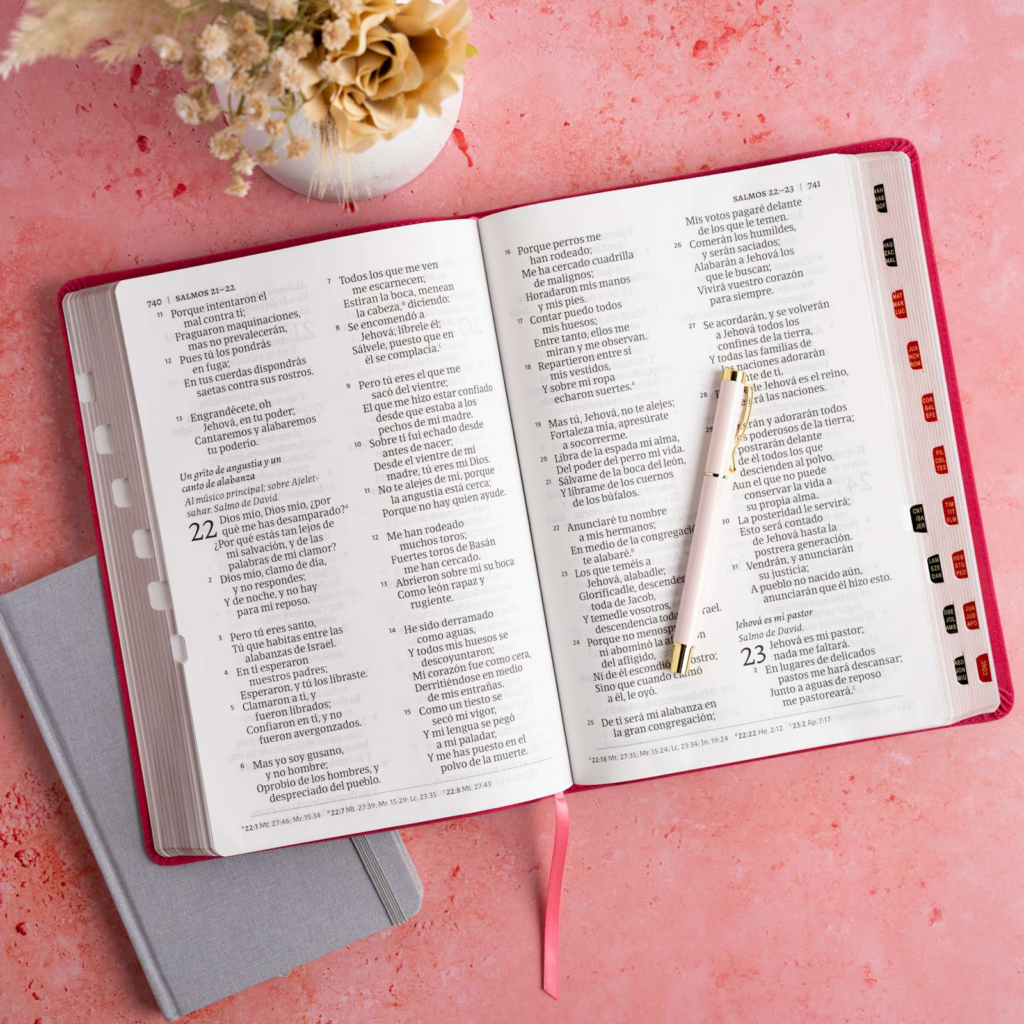 740 | SALMOS 21–22
11 Porque intentaron el
mal contra ti;
Fraguaron maquinaciones,
mas no prevalecerán,
12 Pues tú los pondrás
en fuga;
En tus cuerdas dispondrás
saetas contra sus rostros.
13 Engrandécete, oh
Jehová, en tu poder;
Cantaremos y alabaremos
tu poderío.
Un grito de angustia y un
canto de alabanza
Al músico principal; sobre Ajelet-
sahar. Salmo de David.
22 Dios mío, Dios mío, ¿por
qué me has desamparado?ᴬ
¿Por qué estás tan lejos de
mi salvación, y de las
palabras de mi clamor?
2 Dios mío, clamo de día,
y no respondes;
Y de noche, y no hay
para mí reposo.
3 Pero tú eres santo,
Tú que habitas entre las
alabanzas de Israel.
4 En ti esperaron
nuestros padres;
Esperaron, y tú los libraste.
5 Clamaron a ti, y
fueron librados;
Confiaron en ti, y no
fueron avergonzados.
6 Mas yo soy gusano,
y no hombre;
Oprobio de los hombres, y
despreciado del pueblo.
7 Todos los que me ven
me escarnecen;
Estiran la boca, menean
la cabeza,ᴮ diciendo:
8 Se encomendó a
Jehová; líbrele él;
Sálvele, puesto que en
él se complacía.ᶜ
9 Pero tú eres el que me
sacó del vientre;
El que me hizo estar confiado
desde que estaba a los
pechos de mi madre.
10 Sobre ti fui echado desde
antes de nacer;
Desde el vientre de mi
madre, tú eres mi Dios.
11 No te alejes de mí, porque
la angustia está cerca;
Porque no hay quien ayude.
12 Me han rodeado
muchos toros;
Fuertes toros de Basán
me han cercado.
13 Abrieron sobre mí su boca
Como león rapaz y
rugiente.
14 He sido derramado
como aguas,
Y todos mis huesos se
descoyuntaron;
Mi corazón fue como cera,
Derritiéndose en medio
de mis entrañas.
15 Como un tiesto se
secó mi vigor,
Y mi lengua se pegó
a mi paladar,
Y me has puesto en el
polvo de la muerte.
ᴬ22:1 Mt. 27:46, Mr. 15:34 ᴮ22:7 Mt. 27:39; Mr. 15:29; Lc. 23:35 ᶜ22:8 Mt. 27:43
SALMOS 22–23 | 741
16 Porque perros me
han rodeado;
Me ha cercado cuadrilla
de malignos;
Horadaron mis manos
y mis pies.
17 Contar puedo todos
mis huesos;
Entre tanto, ellos me
miran y me observan.
18 Repartieron entre sí
mis vestidos,
Y sobre mi ropa
echaron suertes.ᴬ
19 Mas tú, Jehová, no te alejes;
Fortaleza mía, apresúrate
a socorrerme.
20 Libra de la espada mi alma,
Del poder del perro mi vida.
21 Sálvame de la boca del león,
Y líbrame de los cuernos
de los búfalos.
22 Anunciaré tu nombre
a mis hermanos;
En medio de la congregació
te alabaré.ᴮ
23 Los que teméis a
Jehová, alabadle;
Glorificadle, descenden
toda de Jacob,
Y temedle vosotros,
descendencia toda rael.
24 Porque no menosp
ni abominó la a
del afligido,
Ni de él escondió ostro;
Sino que cuando clamó
a él, le oyó.
25 De ti será mi alabanza en
la gran congregación;
Mis votos pagaré delante
de los que le temen.
26 Comerán los humildes,
y serán saciados;
Alabarán a Jehová los
que le buscan;
Vivirá vuestro corazón
para siempre.
27 Se acordarán, y se volverán
a Jehová todos los
confines de la tierra,
Y todas las familias de
las naciones adorarán
te de ti.
28 e Jehová es el reino,
rá las naciones.
29 rán y adorarán todos
s poderosos de la tierra;
postrarán delante
de él todos los que
descienden al polvo,
Aun el que no puede
conservar la vida a
su propia alma.
30 La posteridad le servirá;
Esto será contado
de Jehová hasta la
postrera generación.
31 Vendrán, y anunciarán
su justicia;
A pueblo no nacido aún,
anunciarán que él hizo esto.
Jehová es mi pastor
Salmo de David.
23 Jehová es mi pastor;
nada me faltará.
2 En lugares de delicados
pastos me hará descansar;
Junto a aguas de reposo
me pastoreará.ᶜ
ᴬ22:18 Mt. 27:35, Mr. 15:24; Lc. 23:34; Jn. 19:24 ᴮ22:22 He. 2:12 ᶜ23:2 Ap. 7:17
NAH
HAB
SOF
HAG
ZAC
MAL
MAT
MAR
LUC
JUA
HCH
ROM
COR
GAL
EFE
FIL
COL
TES
CNT
ISA
JER
TIM
TIT
FLM
LAM
EZE
DAN
HEB
STG
PED
OSE
JOL
AMS
JUA
JUD
APO
ABD
JON
MIQ
CONC